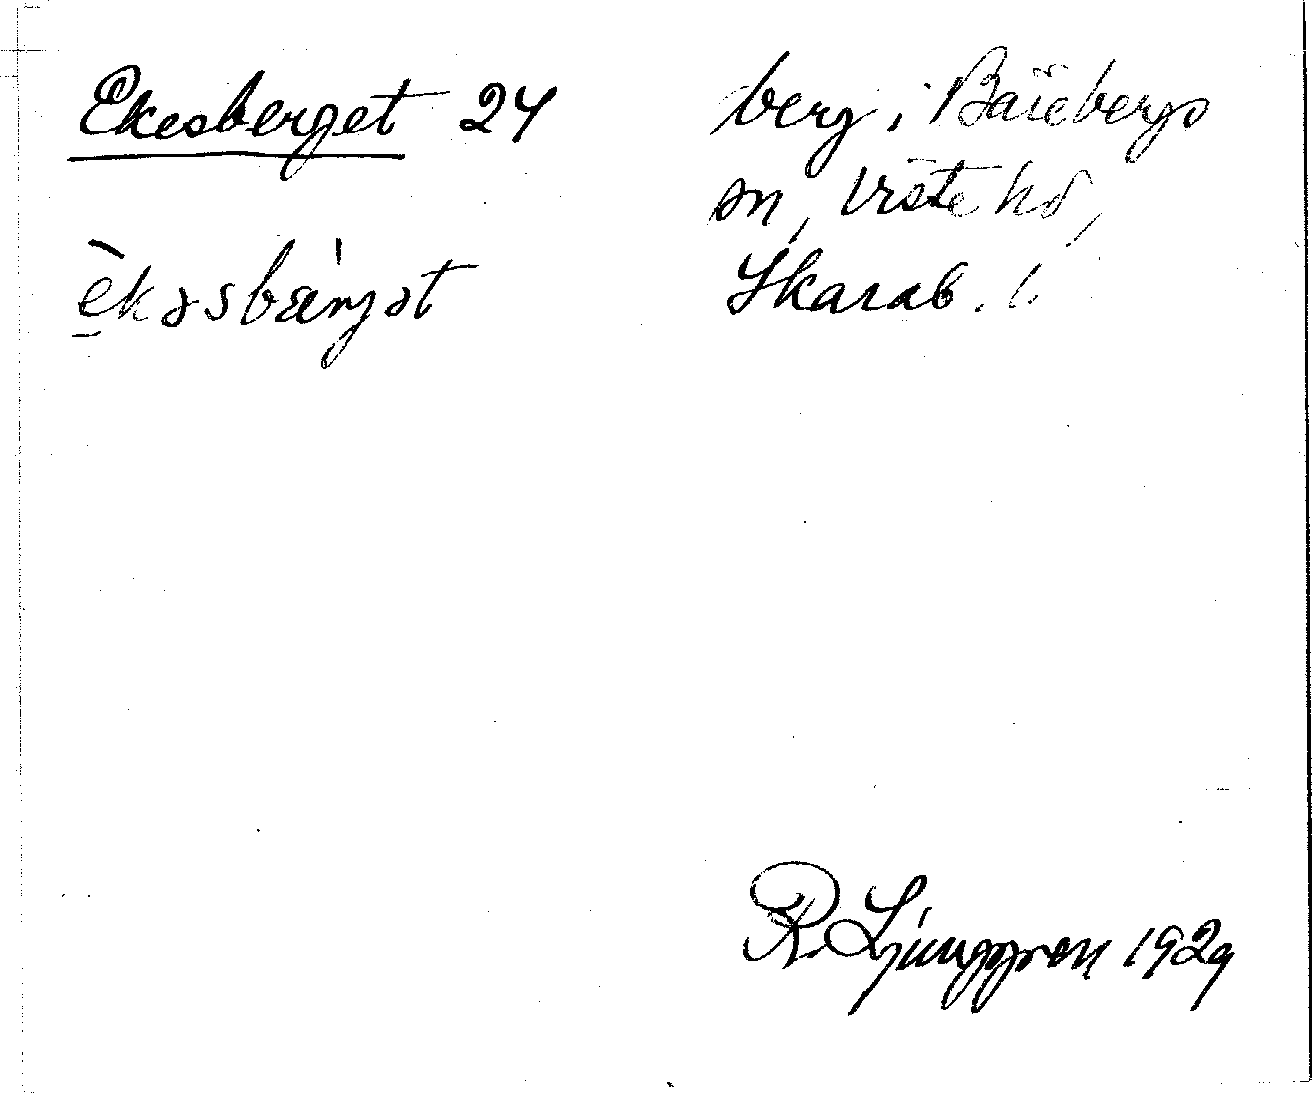 Ekesberget 24
èkəsbær̀jət
berg i Bärebergs
sn, Viste hd,
Skarab. l.
R. Ljunggren 1929